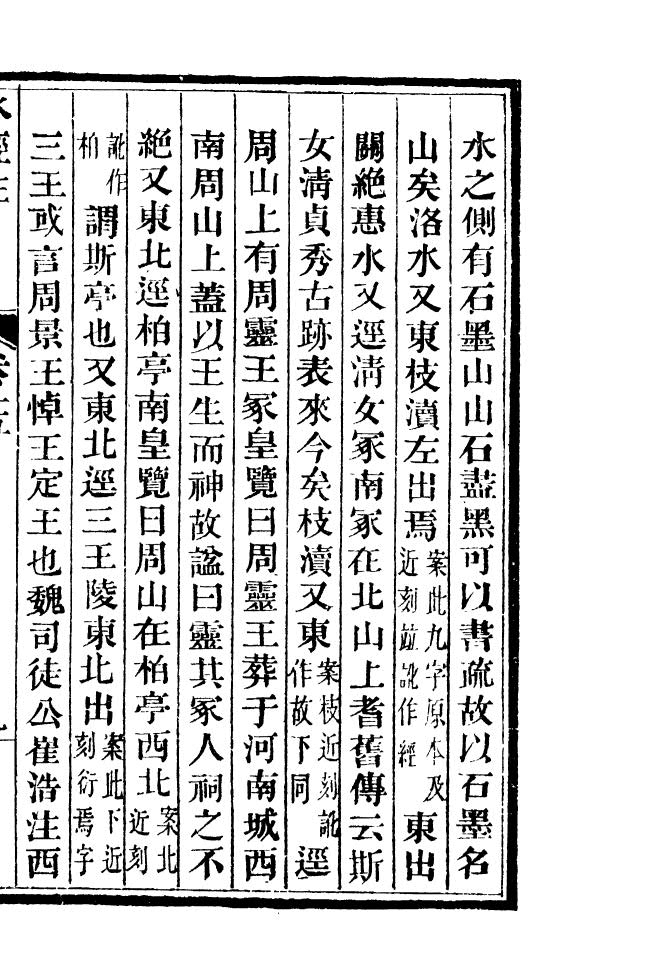 水之側有石墨山山石盡黑可以書疏故以石墨名
山矣洛水又東枝瀆左出焉案此九字原本及近刻竝訛作經東出
關絕惠水又逕清女冢南冢在北山上耆舊傳云斯
女清貞秀古跡表來今矣枝瀆又東案枝近刻訛作故下同逕
周山上有周靈王冢皇覽曰周靈王葬于河南城西
南周山上蓋以王生而神故諡曰靈其冢人祠之不
絕又東北逕柏亭南皇覽曰周山在柏亭西北案北近刻
訛作柏謂斯亭也又東北逕三王陵東北出案此下近刻衍焉字
三王或言周景王悼王定王也魏司徒公崔浩注西
水經注 卷十五